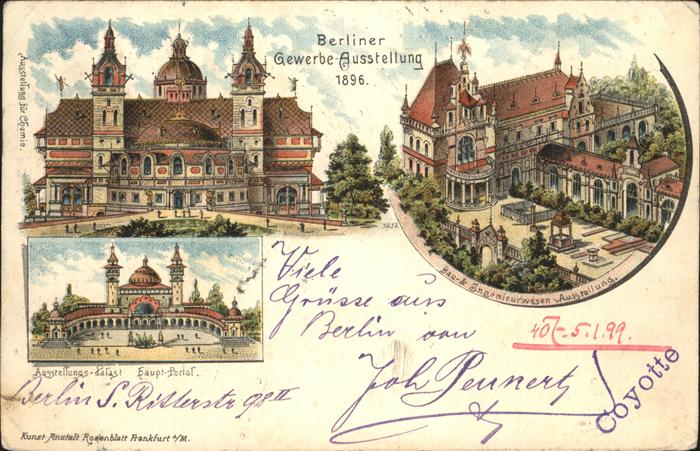 Berliner
Gewerbe-Ausstellung
1896.
Ausstellung für Chemie.
1957.
Bau- & Ingenieurwesen-Ausstellung.
Viele
Grüsse aus
Berlin von
Joh Peunertz
407-5.1.99.
Coyotte
Ausstellungs-Palast Haupt-Portal.
Berlin S. Ritterstr 98 II
Kunst Anstalt Rosenblatt Frankfurt a/M.